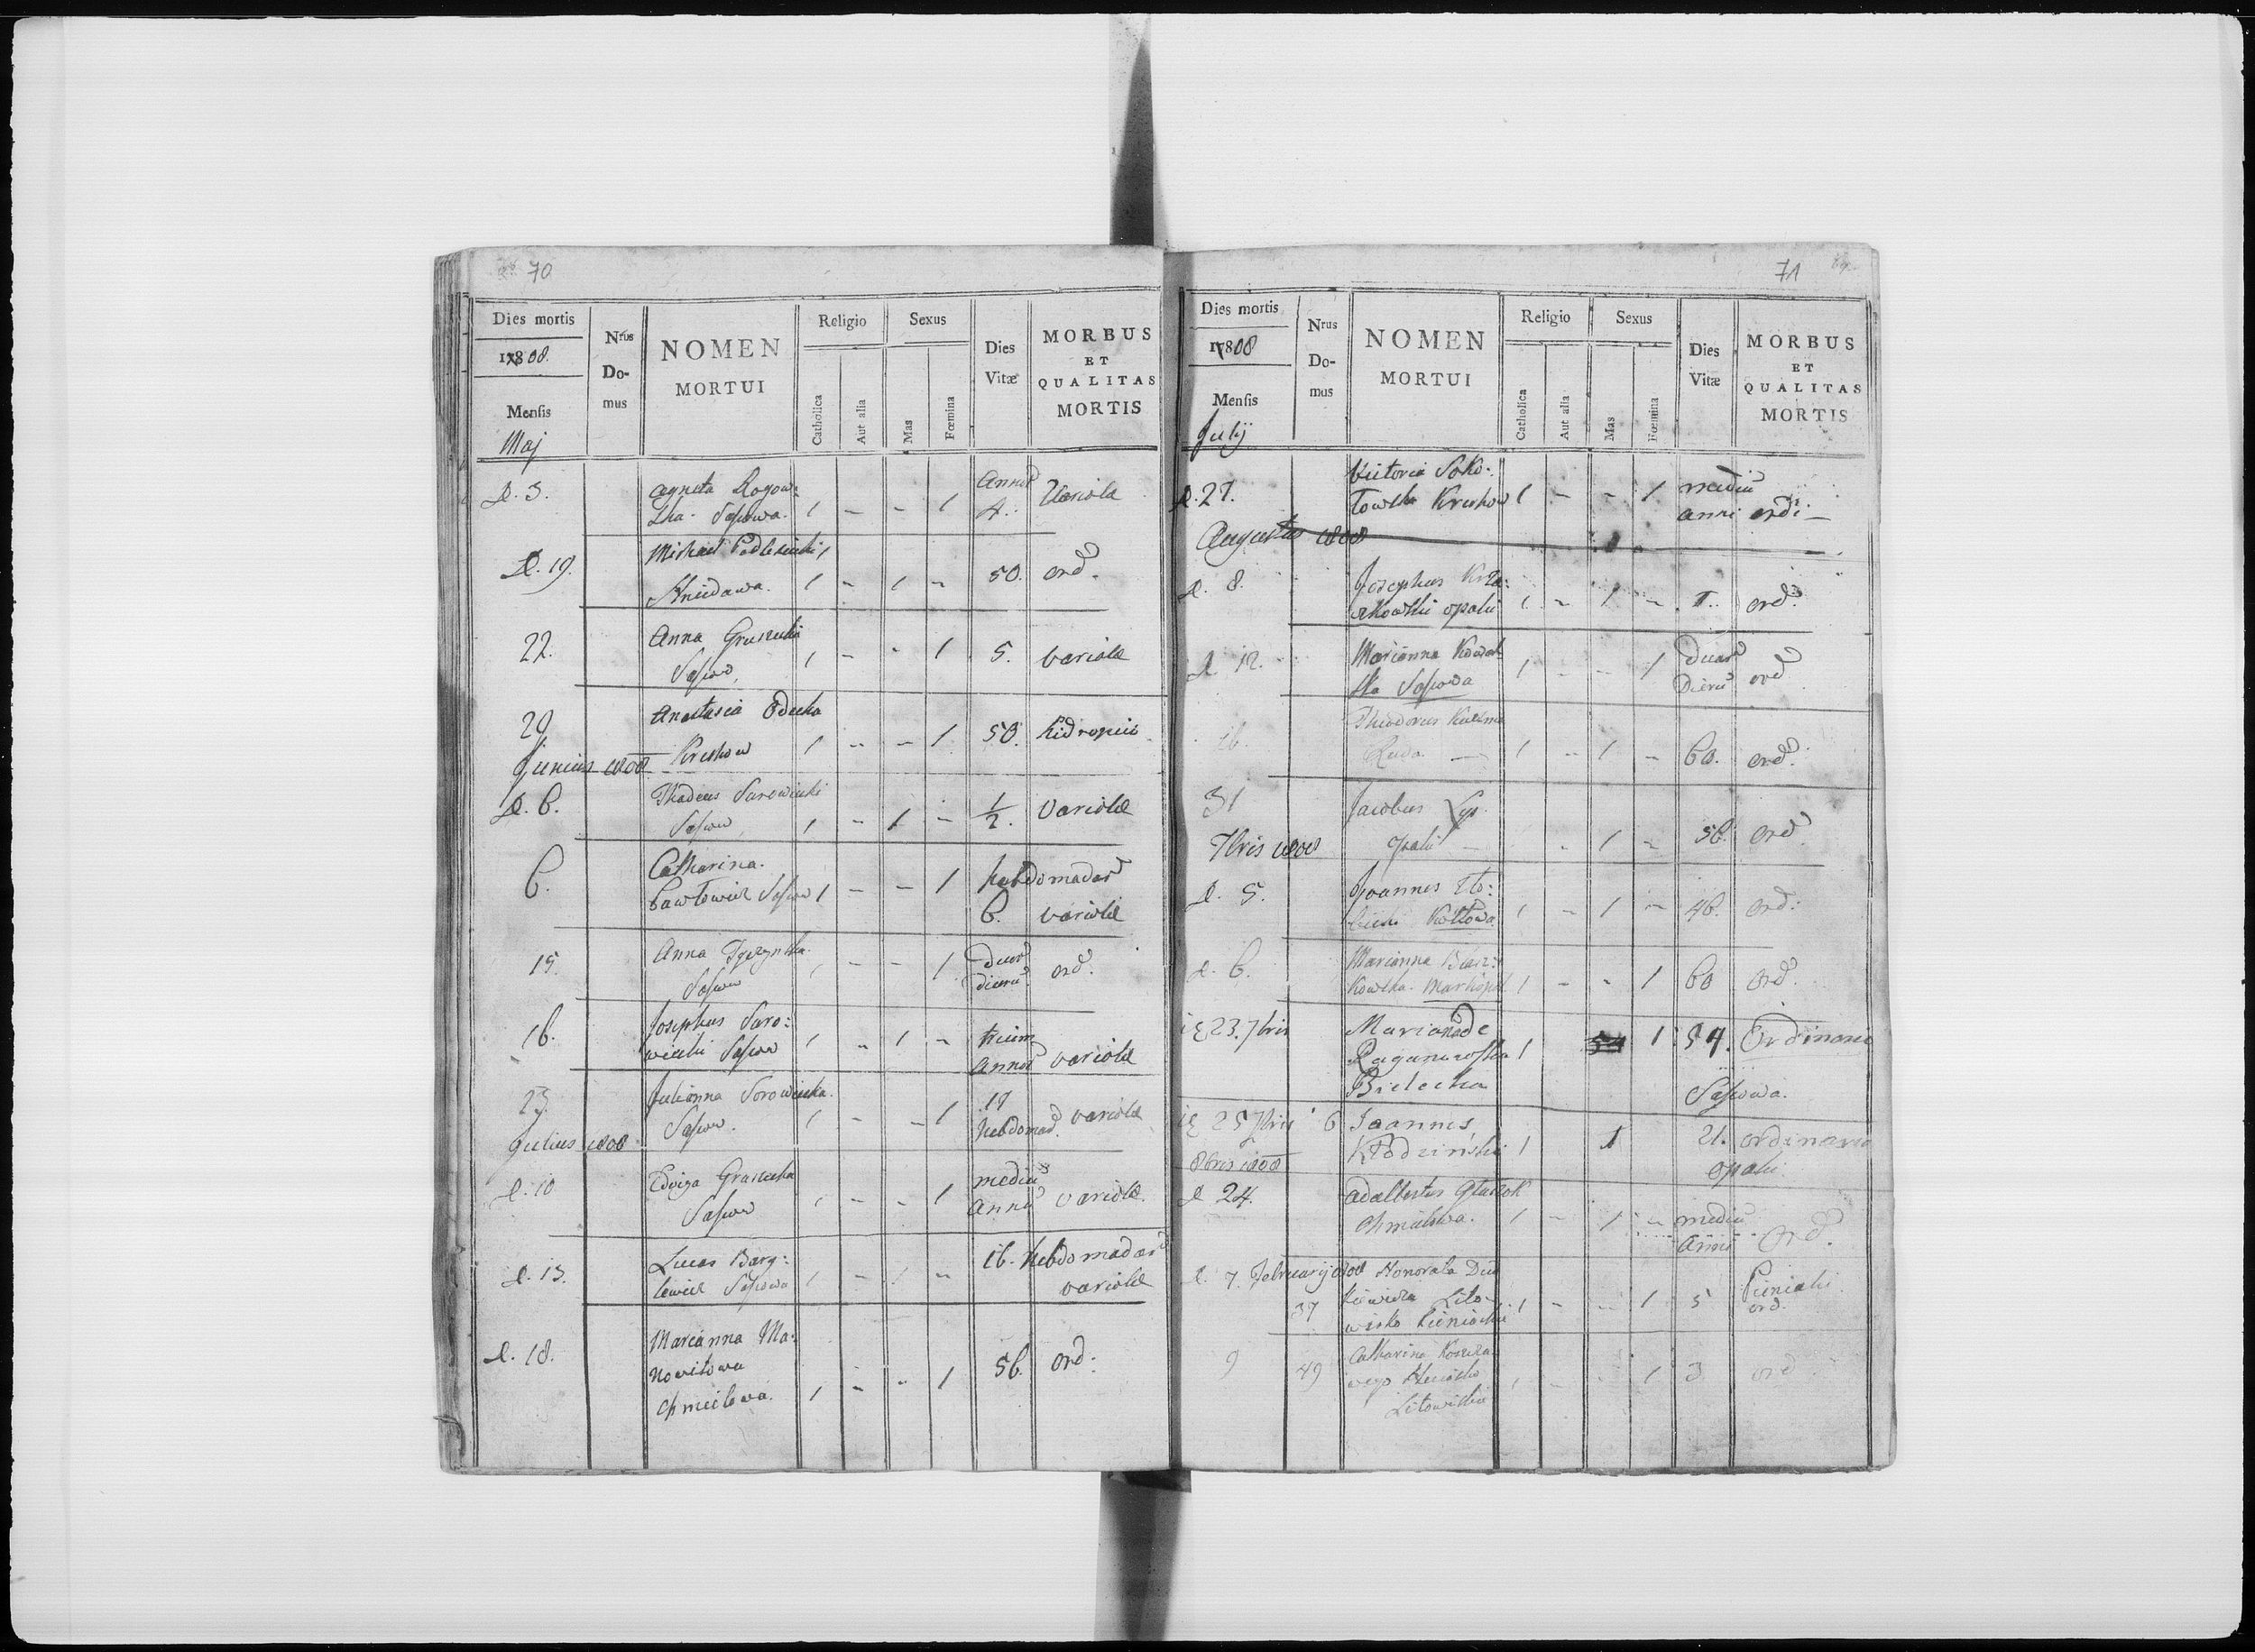 70
Dies mortis
1808.
Mensis
Maj
Nrus
Do-
mus
NOMEN
MORTUI
Religio
Catholica
Aut alia
Sexus
Mas
Fœmina
Dies
Vitæ
MORBUS
ET
QUALITAS
MORTIS
D. 3. Agneta Rogow: Annor
ska. Sasowa. 1 - - 1 4. Variola
D. 19. Michael Podlesiecki
1 - 1 - 50. ord.
22. Anna Gruszecka
Sasow 1 - - 1 5. variolæ
20 Anastasia
Kruhow 1 - - 1 50. hidropisi
Junius 1808
D. 6. Thadeus Sarowiecki
Sasow 1 - 1 - 1/2. Variolæ
6. Catharina
Pawlowicz Sasow 1 - - 1 hebdomadar
6. variolæ
15. Anna
Sasow - - 1 duor dierum ord.
16. Josephus Saro:
wiecki Sasow 1 - 1 - trium
annor variolæ
23. Julianna Sorowiecka
Sasow. 1 - - 1 17
hebdomad. variolæ
Julius 1808
D. 10 Edviga Gruszecka
Sasow 1 - - 1 mediu
anni variolæ
D. 13. Lucas Barg:
lewicz Sasowa 1 - 1 - 16. hebdomadar
variolæ
D. 18. Marianna Ma:
nowitowa
Chmielowa. 1 - - 1 56. ord:
71
Dies mortis
1808
Mensis
Julij
Nrus
Do-
mus
NOMEN
MORTUI
Religio
Catholica
Aut alia
Sexus
Mas
Fœmina
Dies
Vitæ
MORBUS
ET
QUALITAS
MORTIS
D. 27. Victoria Soko:
łowska Kruhow 1 - - 1 mediu
anni ordi-
Augustus 1808
D. 8. Josephus
opaki 1 - 1 - 1. ord.
D 12. Marianna Kowal
ska Sasowa 1 - - 1 duar
Dieru ord
16. Theodorus
Ruda 1 - 1 - 60. ord.
31 Jacobus
opaki - 1 - 56. ord
7bris 1808
D. 5. Joannes
Kołtowa 1 - 1 - 46. ord:
D. 6. Marianna
kowska. Markopol 1 - - 1 60 ord.
23. 7bris Marianna de
Bielecka 1 1 54. Ordinaria
Sasowa.
25 7bris 6 Joannes
Kłodzinski 1 1 21. ordinaria
opaki
8bris 1808
D 24. Adalbertus
Chmielowa. 1 - 1 - mediu
Anni Ord.
D. 7. Februarij 1808 Honorata
37 Lito-
wisko Pieniaki 1 - - 1 5 Pieniaki
ord.
9 49 Catharina
Litowiska 1 3 ord